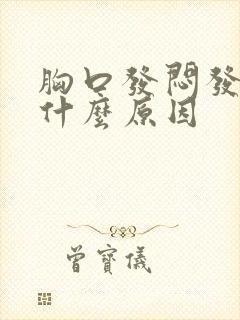 胸口發悶發
什麼原因
曾寶儀